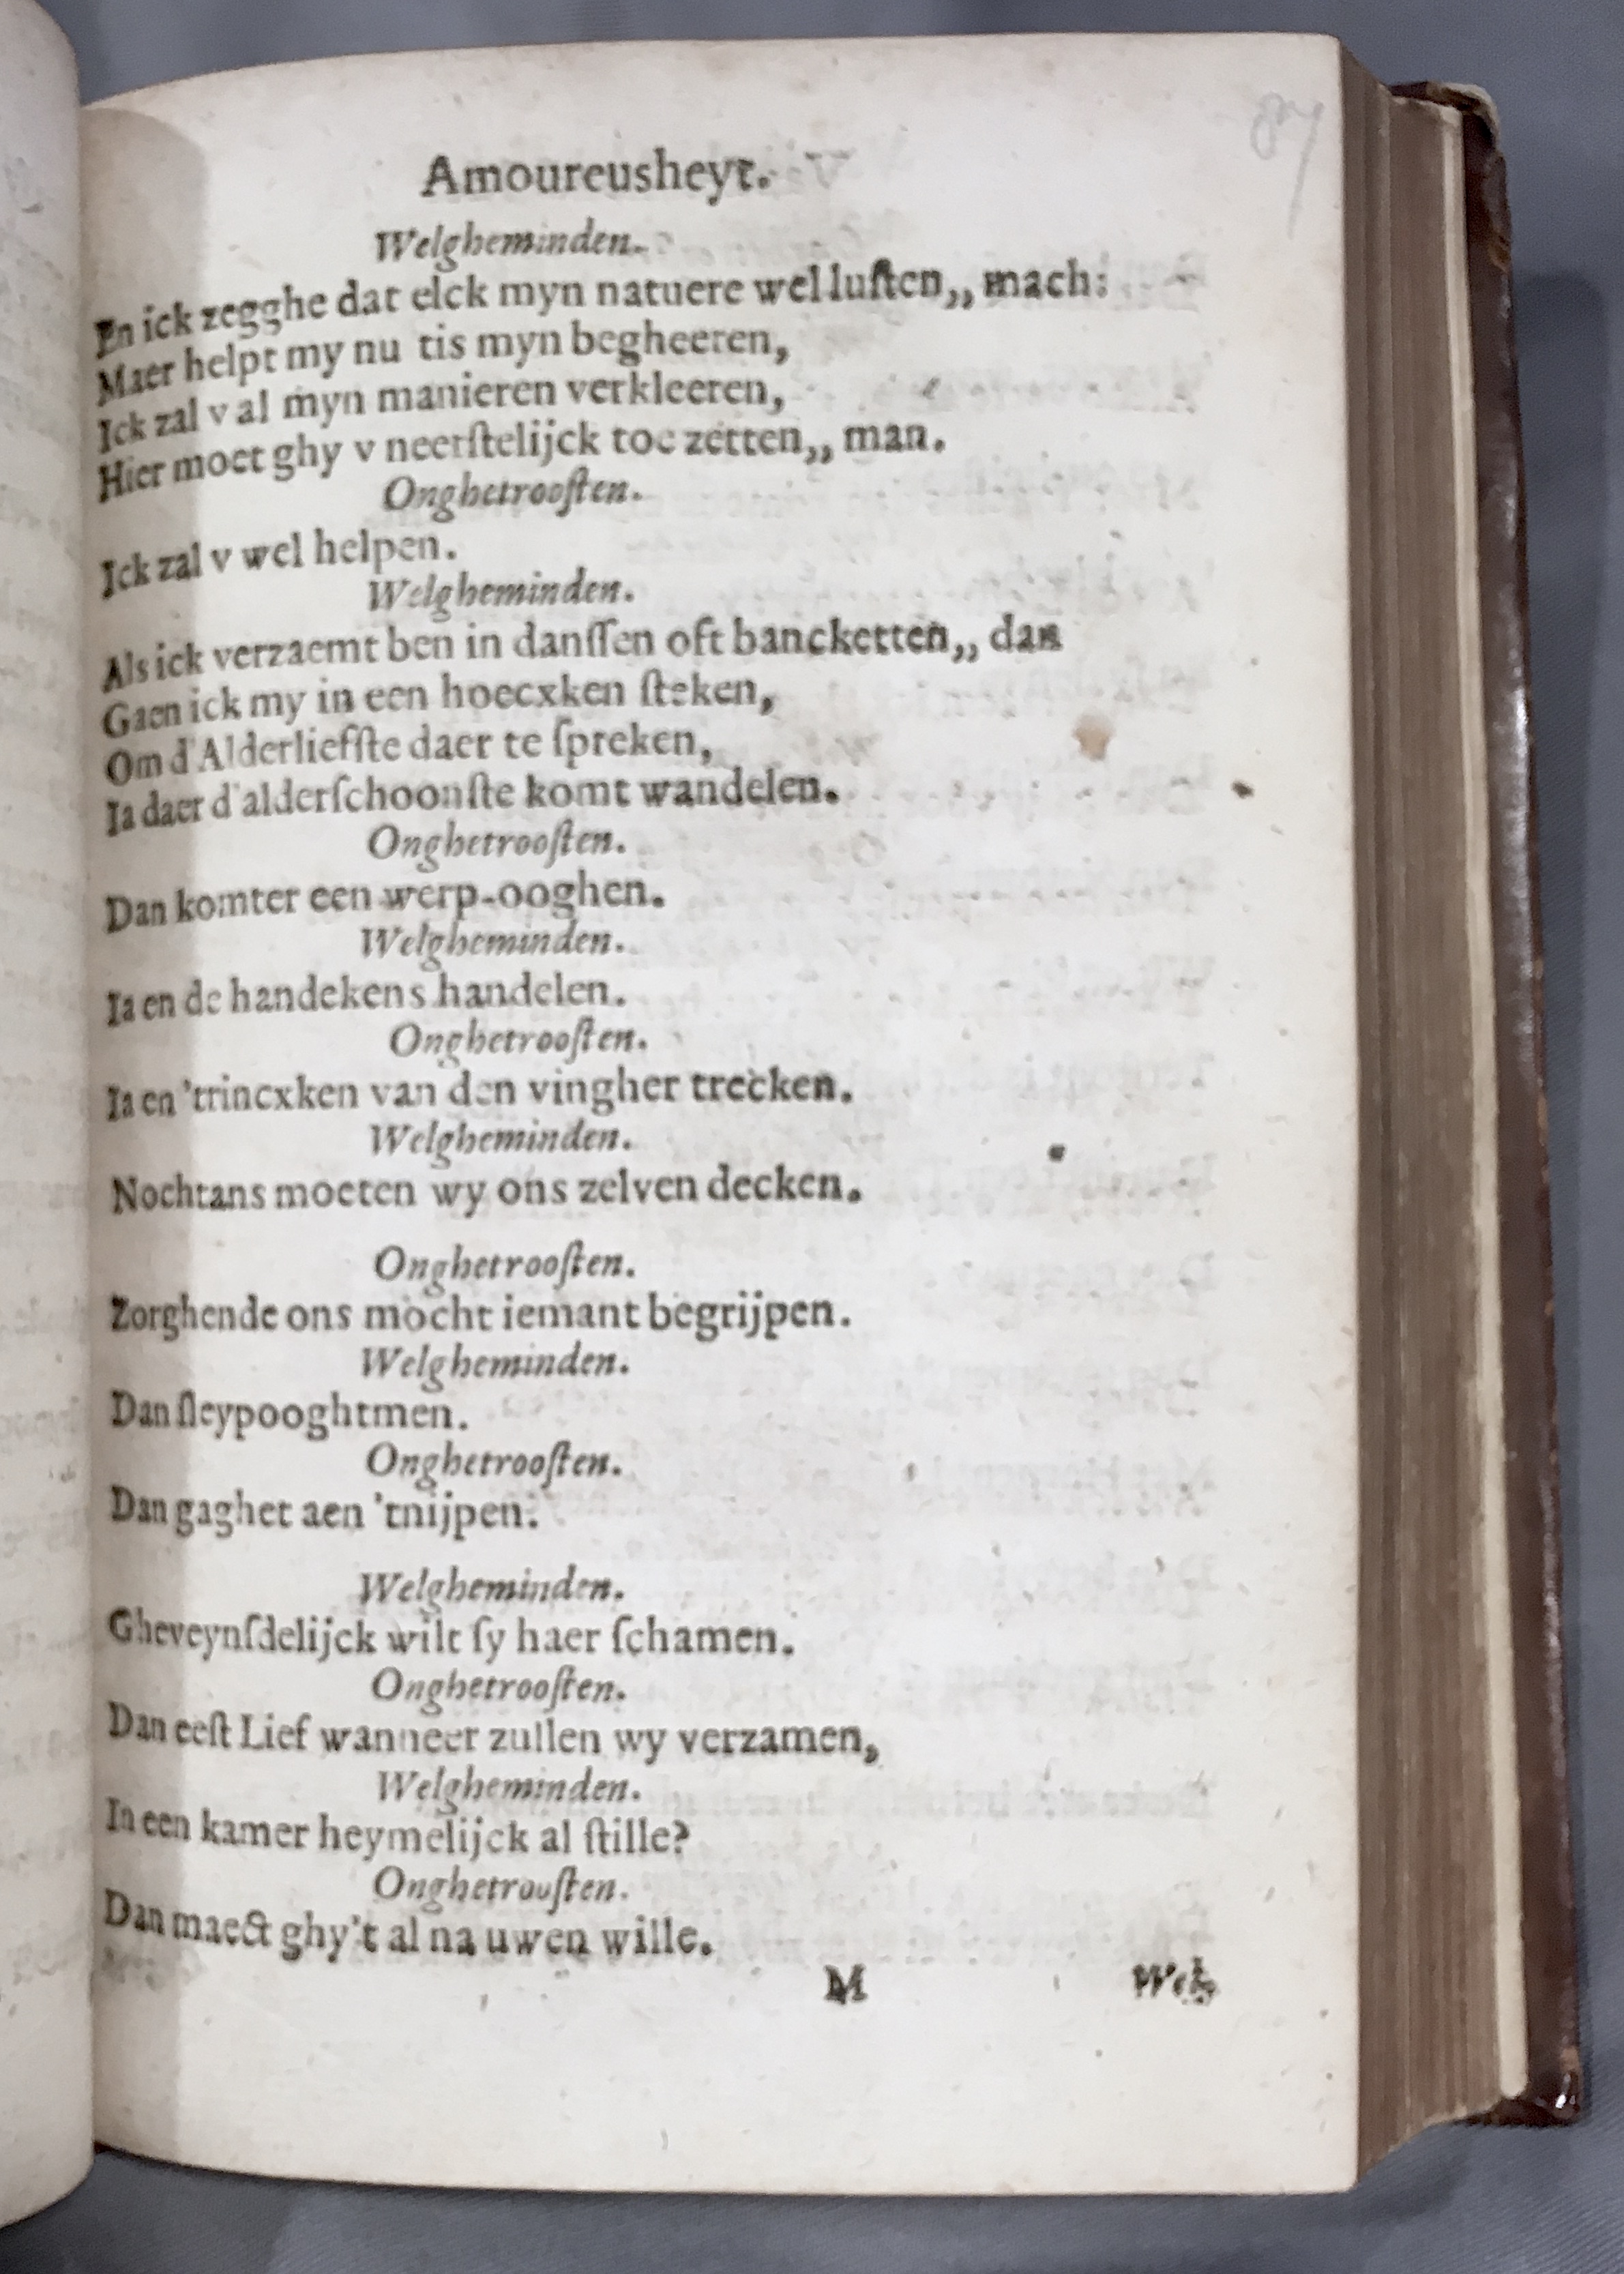 Amoureusheyt.
Welgheminden.
En ick zegghe dat elck myn natuere wel luſten,, mach:
Maer helpt my nu tis myn begheeren,
Ick zal v al myn manieren verkleeren,
Hier moet ghy v neerſtelijck toe zetten,, man.
Onghetrooſten.
Ick zal v wel helpen.
Welgheminden.
Als ick verzaemt ben in danſſen oft bancketten,, dan
Gaen ick my in een hoecxken ſteken,
Om d'Alderliefſte daer te ſpreken,
Ia daer d'alderſchoonſte komt wandelen.
Onghetrooſten.
Dan komter een werp-ooghen.
Welgheminden.
Ia en de handekens handelen.
Onghetrooſten.
Ia en 'trincxken van den vingher trecken.
Welgheminden.
Nochtans moeten wy ons zelven decken.
Onghetrooſten.
Zorghende ons mocht iemant begrijpen.
Welgheminden.
Dan ſleypooghtmen.
Onghetrooſten.
Dan gaghet aen 'tnijpen.
Welgheminden.
Gheveynſdelijck wilt ſy haer ſchamen.
Onghetrooſten.
Dan eeſt Lief wanneer zullen wy verzamen,
Welgheminden.
In een kamer heymelijck al ſtille?
Onghetrooſten.
Dan maect ghy't al na uwen wille.
M Wel-